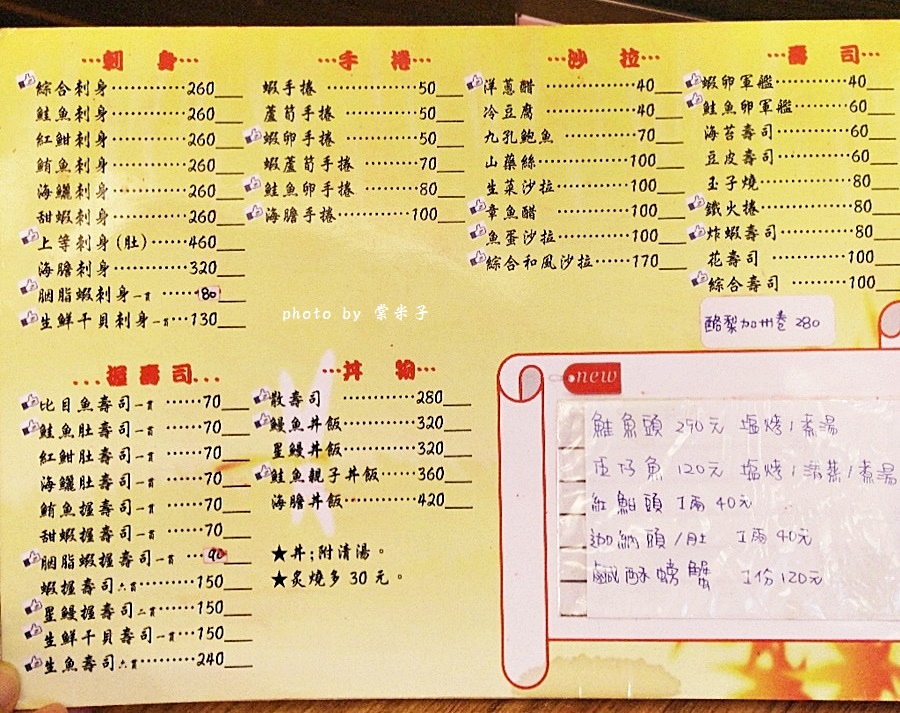 刺身
綜合刺身 260
鮭魚刺身 260
紅魽刺身 260
鮪魚刺身 260
海鱺刺身 260
甜蝦刺身 260
上等刺身(肚) 460
海膽刺身 320
胭脂蝦刺身一貫 80
生鮮干貝刺身一貫 130
手捲
蝦手捲 50
蘆筍手捲 50
蝦卵手捲 50
蝦蘆筍手捲 70
鮭魚卵手捲 80
海膽手捲 100
沙拉
洋蔥醋 40
冷豆腐 40
九孔鮑魚 70
山藥絲 100
生菜沙拉 100
章魚醋 100
魚蛋沙拉 100
綜合和風沙拉 170
壽司
蝦卵軍艦 40
鮭魚卵軍艦 60
海苔壽司 60
豆皮壽司 60
玉子燒 80
鐵火捲 80
炸蝦壽司 80
花壽司 100
綜合壽司 100
酪梨加州卷 280
photo by 棠米子
握壽司
比目魚壽司一貫 70
鮭魚肚壽司一貫 70
紅魽肚壽司一貫 70
海鱺肚壽司一貫 70
鮪魚握壽司一貫 70
甜蝦握壽司一貫 70
胭脂蝦握壽司一貫 90
蝦握壽司六貫 150
星鰻握壽司二貫 150
生鮮干貝壽司一貫 150
生魚壽司六貫 240
丼物
散壽司 280
鰻魚丼飯 320
星鰻丼飯 320
鮭魚親子丼飯 360
海膽丼飯 420
★丼:附清湯。
★炙燒多30元。
new
鮭魚頭 290元 塩烤/煮湯
魚 120元 塩烤/清蒸/煮湯
紅魽頭 1兩 40元
迦納頭/肚 1兩 40元
鹹酥螃蟹 1份120元